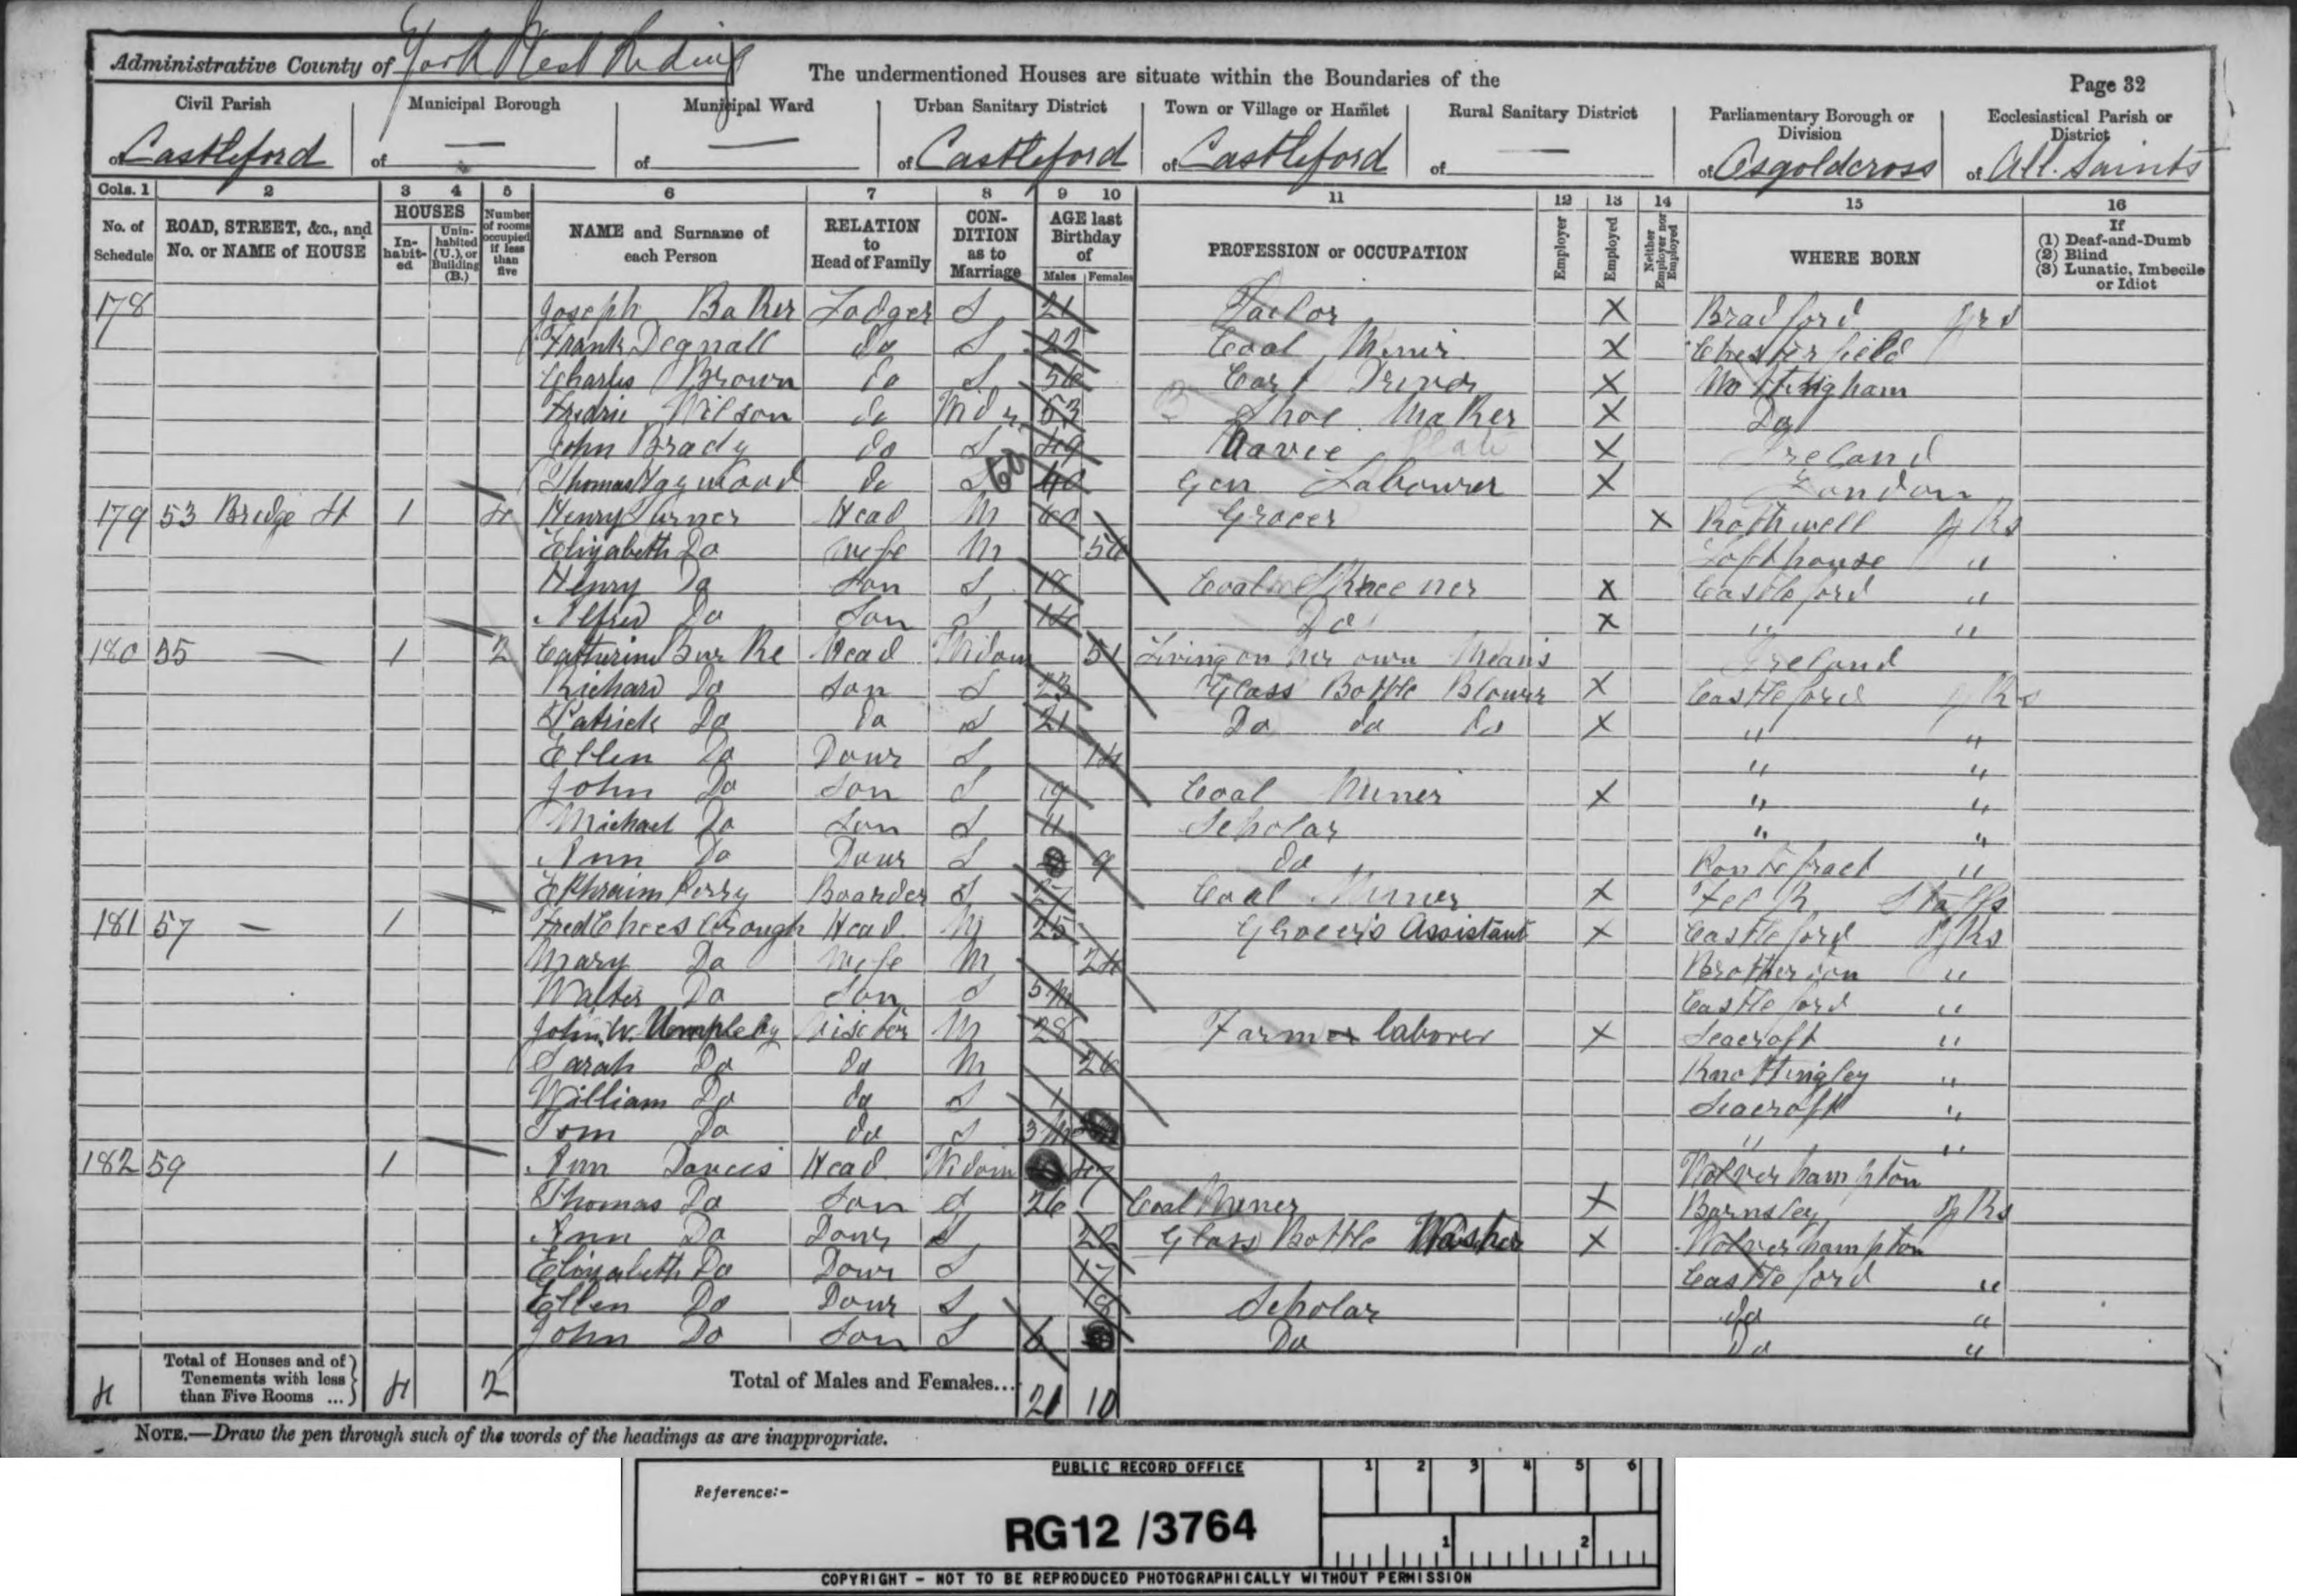 Administrative County of York West Riding
The undermentioned Houses are situate within the Boundaries of the
Page 32
Civil Parish Municipal Borough Municipal Ward Urban Sanitary District Town or Village or Hamlet Rural Sanitary District Parliamentary Borough or Division Ecclesiastical Parish or District
of Castleford of — of — of Castleford of Castleford of — of Osgoldcross of All. Saints
Cols. 1 2 3 4 5 6 7 8 9 10 11 12 13 14 15 16
No. of Schedule ROAD, STREET, &c., and No. or NAME of HOUSE HOUSES In-habit-ed Unin-habited (U.), or Building (B.) Number of rooms occupied if less than five NAME and Surname of each Person RELATION to Head of Family CON-DITION as to Marriage AGE last Birthday of Males Females PROFESSION or OCCUPATION Employer Employed Neither Employer nor Employed WHERE BORN If (1) Deaf-and-Dumb (2) Blind (3) Lunatic, Imbecile or Idiot
178 Joseph Baker Lodger S 21 Tailor X Bradford Yrs
Frank Degnall do S 22 Coal Miner X Chesterfield
Charles Brown do S 56 Cart Driver X Nottingham
Fredric Wilson do Widr 53 Shoe Maker X Do
John Brady do S 49 Navee X Ireland
Thomas do S 40 Gen Labourer X London
179 53 Bridge St 1 4 Henry Turner Head M 60 Grocer X Rothwell Yks
Elizabeth Do Wife M 56 Lofthouse "
Henry Do Son S 18 Coal X Castleford "
Alfred Do Son S 14 Do X " "
180 55 — 1 2 Catherine Burke Head Widow 51 Living on her own Means Ireland
Richard Do Son S 23 Glass Bottle Blower X Castleford Yks
Patrick Do do S 21 Do do do X " "
Ellen Do Daur S 14 " "
John Do Son S 19 Coal Miner X " "
Michael Do Son S 11 Scholar " "
Ann Do Daur S 9 do Pontefract "
Ephraim Perry Boarder S 27 Coal Miner X Staffs
181 57 — 1 Fred Cheesbrough Head M 25 Grocer's Assistant X Castleford Yks
Mary Do Wife M 24 Brotherton "
Walter Do Son S 5m Castleford "
John W. Umpleby Visitor M 28 Farm laborer X Seacroft "
Sarah Do do M 26 Knottingley "
William Do do S 1 Seacroft "
Tom Do do S 3m " "
182 59 1 Ann Davies Head Widow 47 Wolverhampton
Thomas Do Son S 26 Coal Miner X Barnsley Yks
Ann Do Daur S 22 Glass Bottle Washer X Wolverhampton
Elizabeth Do Daur S 17 Castleford "
Ellen Do Daur S Scholar do "
John Do Son S 6 Do Do "
4 Total of Houses and of Tenements with less than Five Rooms ... 4 2 Total of Males and Females... 21 10
NOTE.—Draw the pen through such of the words of the headings as are inappropriate.
PUBLIC RECORD OFFICE
1 2 3 4 5 6
Reference:-
RG12 /3764
1 2
COPYRIGHT - NOT TO BE REPRODUCED PHOTOGRAPHICALLY WITHOUT PERMISSION